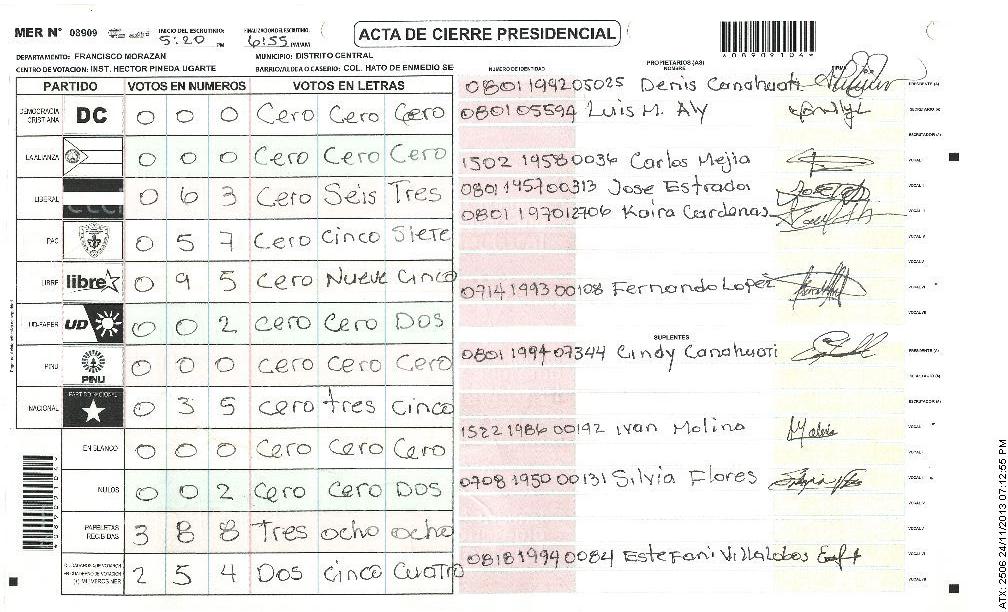 MER Nº 08909 INICIO DEL ESCRUTINIO: 5:20 PM FINALIZACION DEL ESCRUTINIO: 6:55 PM/AM ACTA DE CIERRE PRESIDENCIAL
DEPARTAMENTO: FRANCISCO MORAZAN MUNICIPIO: DISTRITO CENTRAL
CENTRO DE VOTACION: INST. HECTOR PINEDA UGARTE BARRIO/ALDEA O CASERIO: COL. HATO DE ENMEDIO SE
PARTIDO VOTOS EN NUMEROS VOTOS EN LETRAS
DEMOCRACIA CRISTIANA DC 0 0 0 Cero Cero Cero
LA ALIANZA 0 0 0 Cero Cero Cero
LIBERAL 0 6 3 Cero Seis Tres
PAC 0 5 7 Cero Cinco Siete
LIBRE libre 0 9 5 Cero Nueve Cinco
UD-FAPER UD 0 0 2 Cero Cero Dos
PINU PINU 0 0 0 Cero Cero Cero
NACIONAL PARTIDO NACIONAL 0 3 5 Cero tres Cinco
EN BLANCO 0 0 0 Cero Cero Cero
NULOS 0 0 2 Cero Cero Dos
PAPELETAS RECIBIDAS 3 8 8 Tres ocho ocho
2 5 4 Dos Cinco Cuatro
NUMERO DE IDENTIDAD PROPIETARIOS (AS) NOMBRE
0801199205025 Denis Canahuati PRESIDENTE (A)
080105594 Luis M. Aly SECRETARIO (A)
ESCRUTADOR (A)
1502 19580036 Carlos Mejia VOCAL I
0801195700313 Jose Estrada
0801 197012706 Kaira Cardenas
0714 1993 00108 Fernando Lopez
SUPLENTES
0801 1994 07344 Cindy Canahuati PRESIDENTE (A)
SECRETARIO (A)
ESCRUTADOR (A)
1522 1986 00192 Ivan Molina
0708 1950 00131 Silvia Flores
0818 1994 0084 Estefani Villalobos
ATX: 2506 24/11/2013 07:12:55 PM